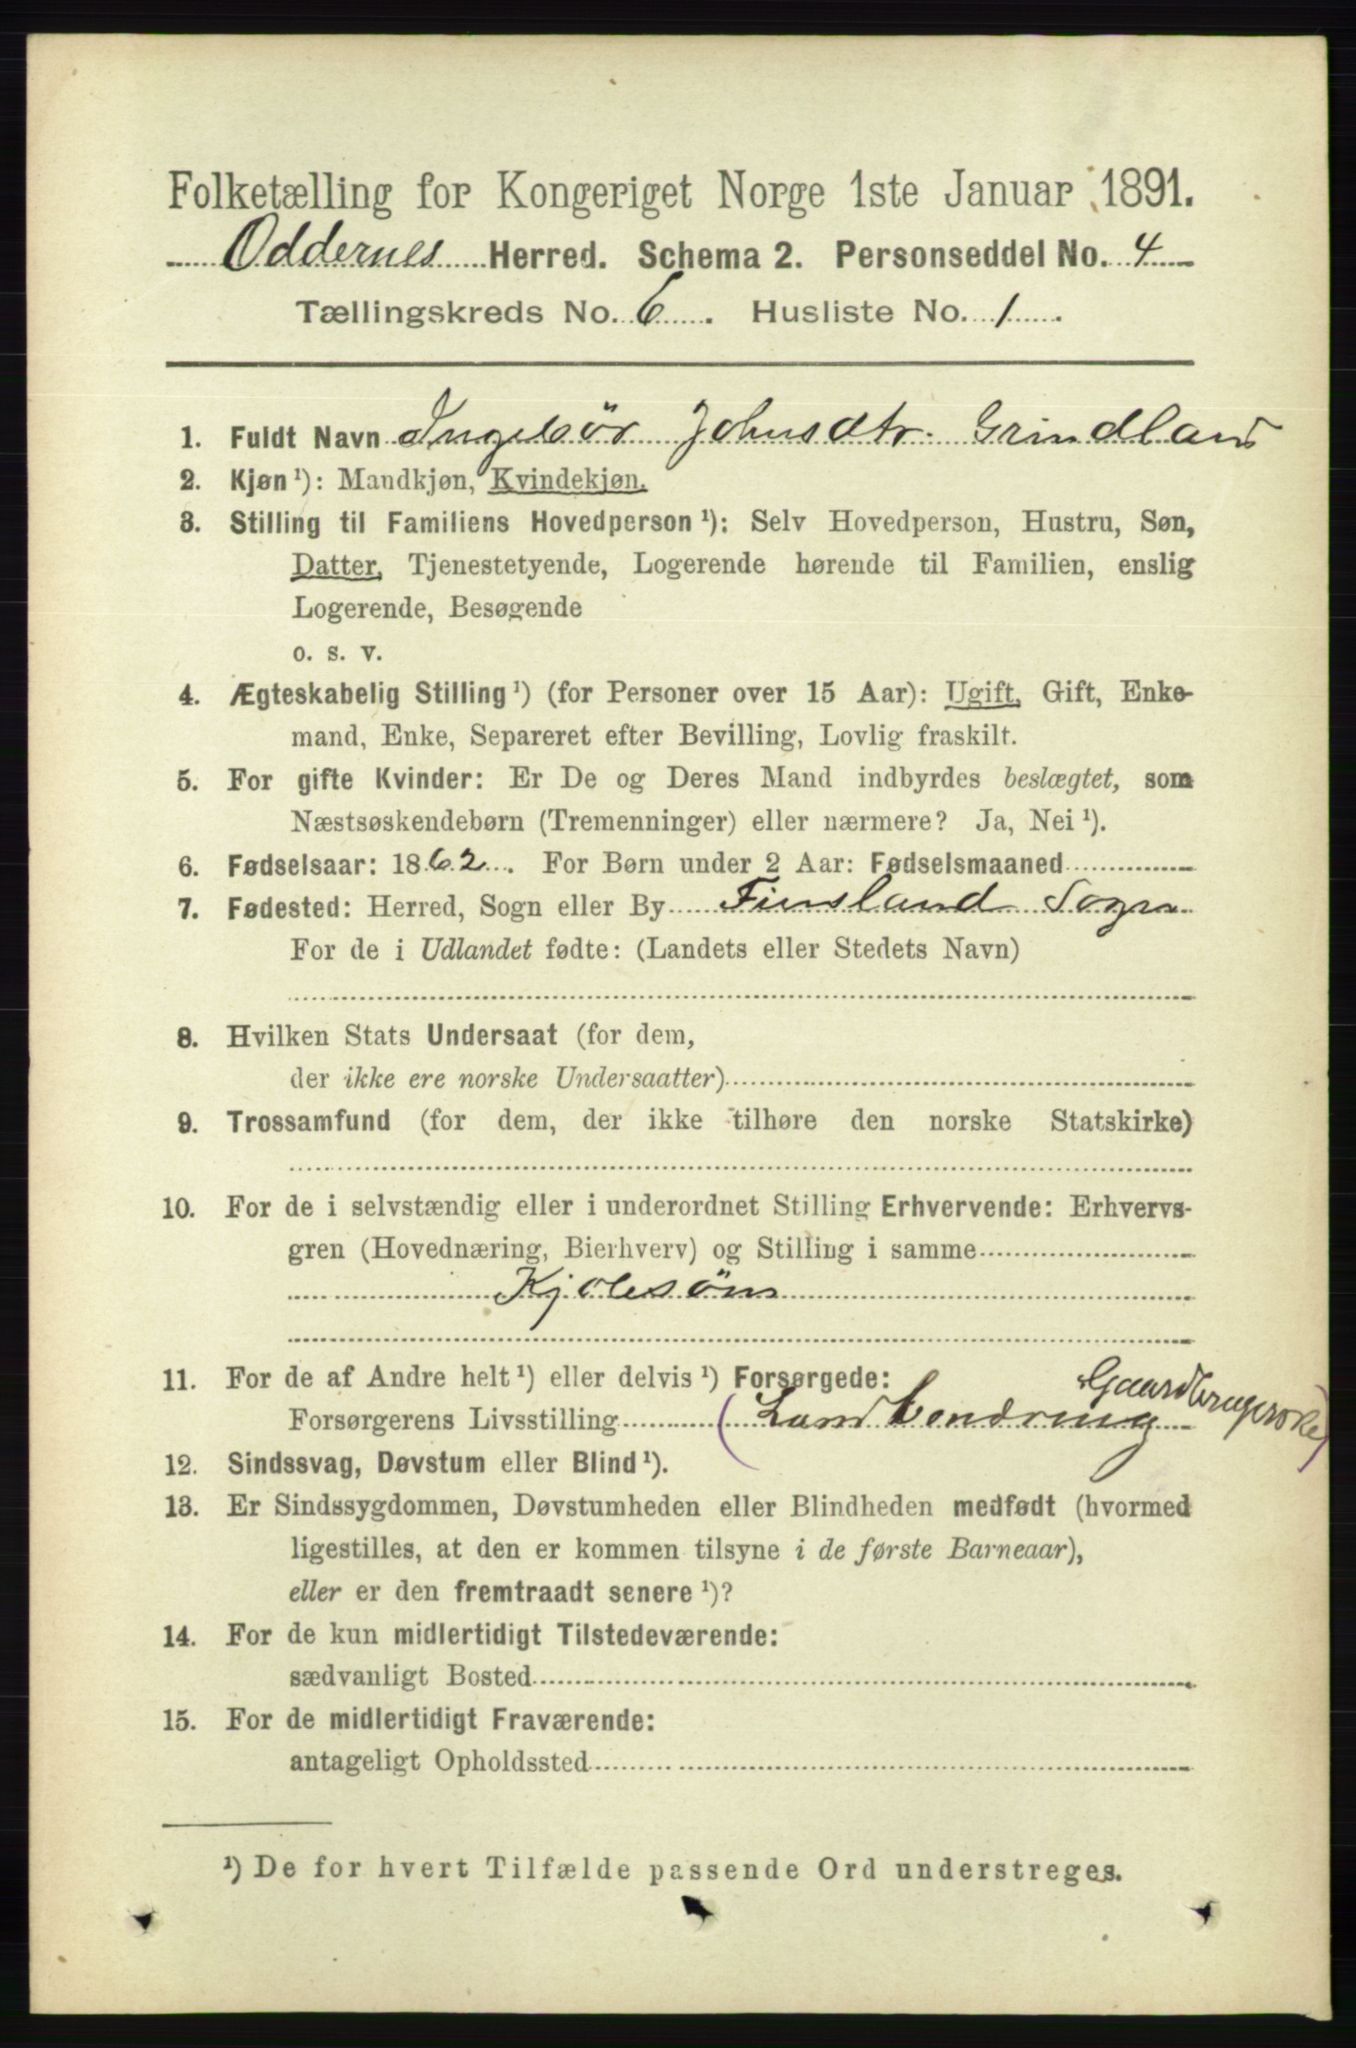 Folketælling for Kongeriget Norge 1ste Januar 1891.
Oddernes Herred. Schema 2. Personseddel No. 4
Tællingskreds No. 6. Husliste No. 1.
1. Fuldt Navn Ingebør Johnsdtr. Grindland
2. Kjøn ¹): Mandkjøn, Kvindekjøn.
3. Stilling til Familiens Hovedperson ¹): Selv Hovedperson, Hustru, Søn,
Datter, Tjenestetyende, Logerende hørende til Familien, enslig
Logerende, Besøgende
o. s. v.
4. Ægteskabelig Stilling ¹) (for Personer over 15 Aar): Ugift, Gift, Enke-
mand, Enke, Separeret efter Bevilling, Lovlig fraskilt.
5. For gifte Kvinder: Er De og Deres Mand indbyrdes beslægtet, som
Næstsøskendebørn (Tremenninger) eller nærmere? Ja, Nei ¹).
6. Fødselsaar: 1862. For Børn under 2 Aar: Fødselsmaaned
7. Fødested: Herred, Sogn eller By Finsland Sogn
For de i Udlandet fødte: (Landets eller Stedets Navn)
8. Hvilken Stats Undersaat (for dem,
der ikke ere norske Undersaatter)
9. Trossamfund (for dem, der ikke tilhøre den norske Statskirke)
10. For de i selvstændig eller i underordnet Stilling Erhvervende: Erhvervs-
gren (Hovednæring, Bierhverv) og Stilling i samme
Kjolesøm
11. For de af Andre helt ¹) eller delvis ¹) Forsørgede:
Gaardbrugerske)
Forsørgerens Livsstilling (Land
12. Sindssvag, Døvstum eller Blind ¹).
13. Er Sindssygdommen, Døvstumheden eller Blindheden medfødt (hvormed
ligestilles, at den er kommen tilsyne i de første Barneaar),
eller er den fremtraadt senere ¹)?
14. For de kun midlertidigt Tilstedeværende:
sædvanligt Bosted
15. For de midlertidigt Fraværende:
antageligt Opholdssted
¹) De for hvert Tilfælde passende Ord understreges.